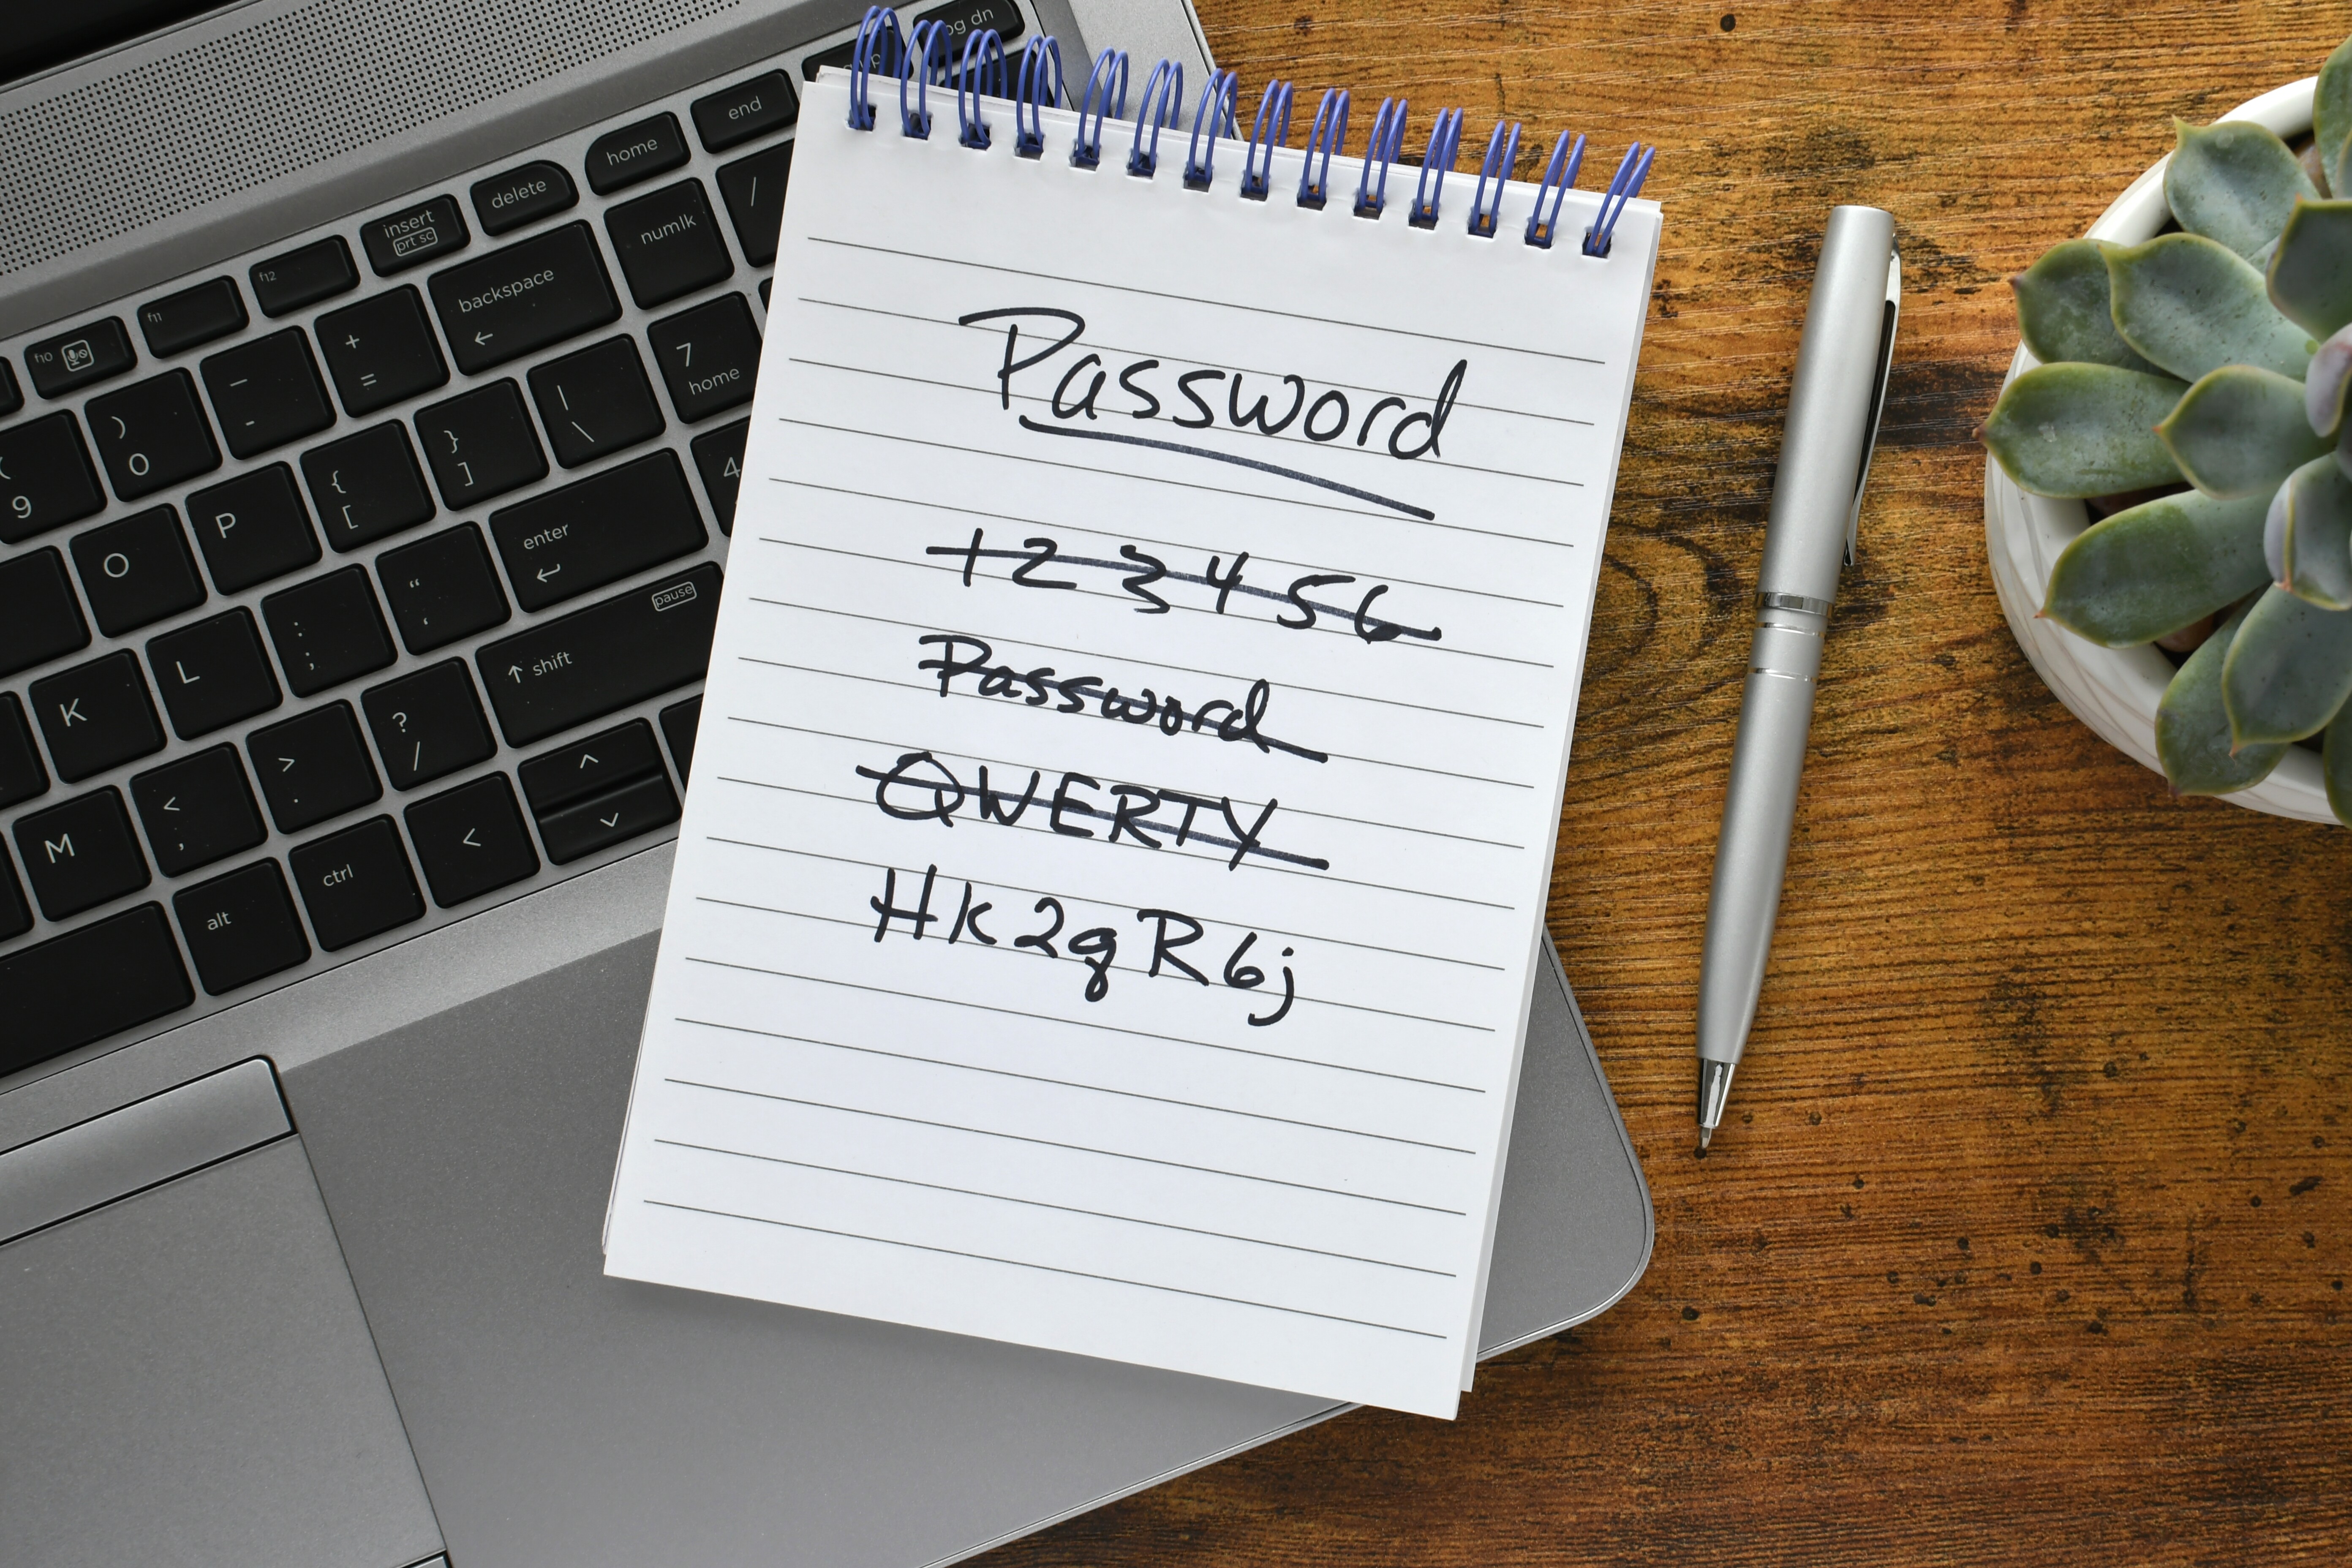 Password
123456
Password
QWERTY
Hk2qR6j
pg dn
end
home
delete
insert
prt sc
f12
f11
f10
numlk
/
backspace
←
+
=
—
-
)
0
(
9
7
home
|
\
}
]
{
[
P
O
4
enter
↵
"
'
:
;
L
K
pause
↑ shift
?
/
>
.
<
,
M
^
v
<
ctrl
alt